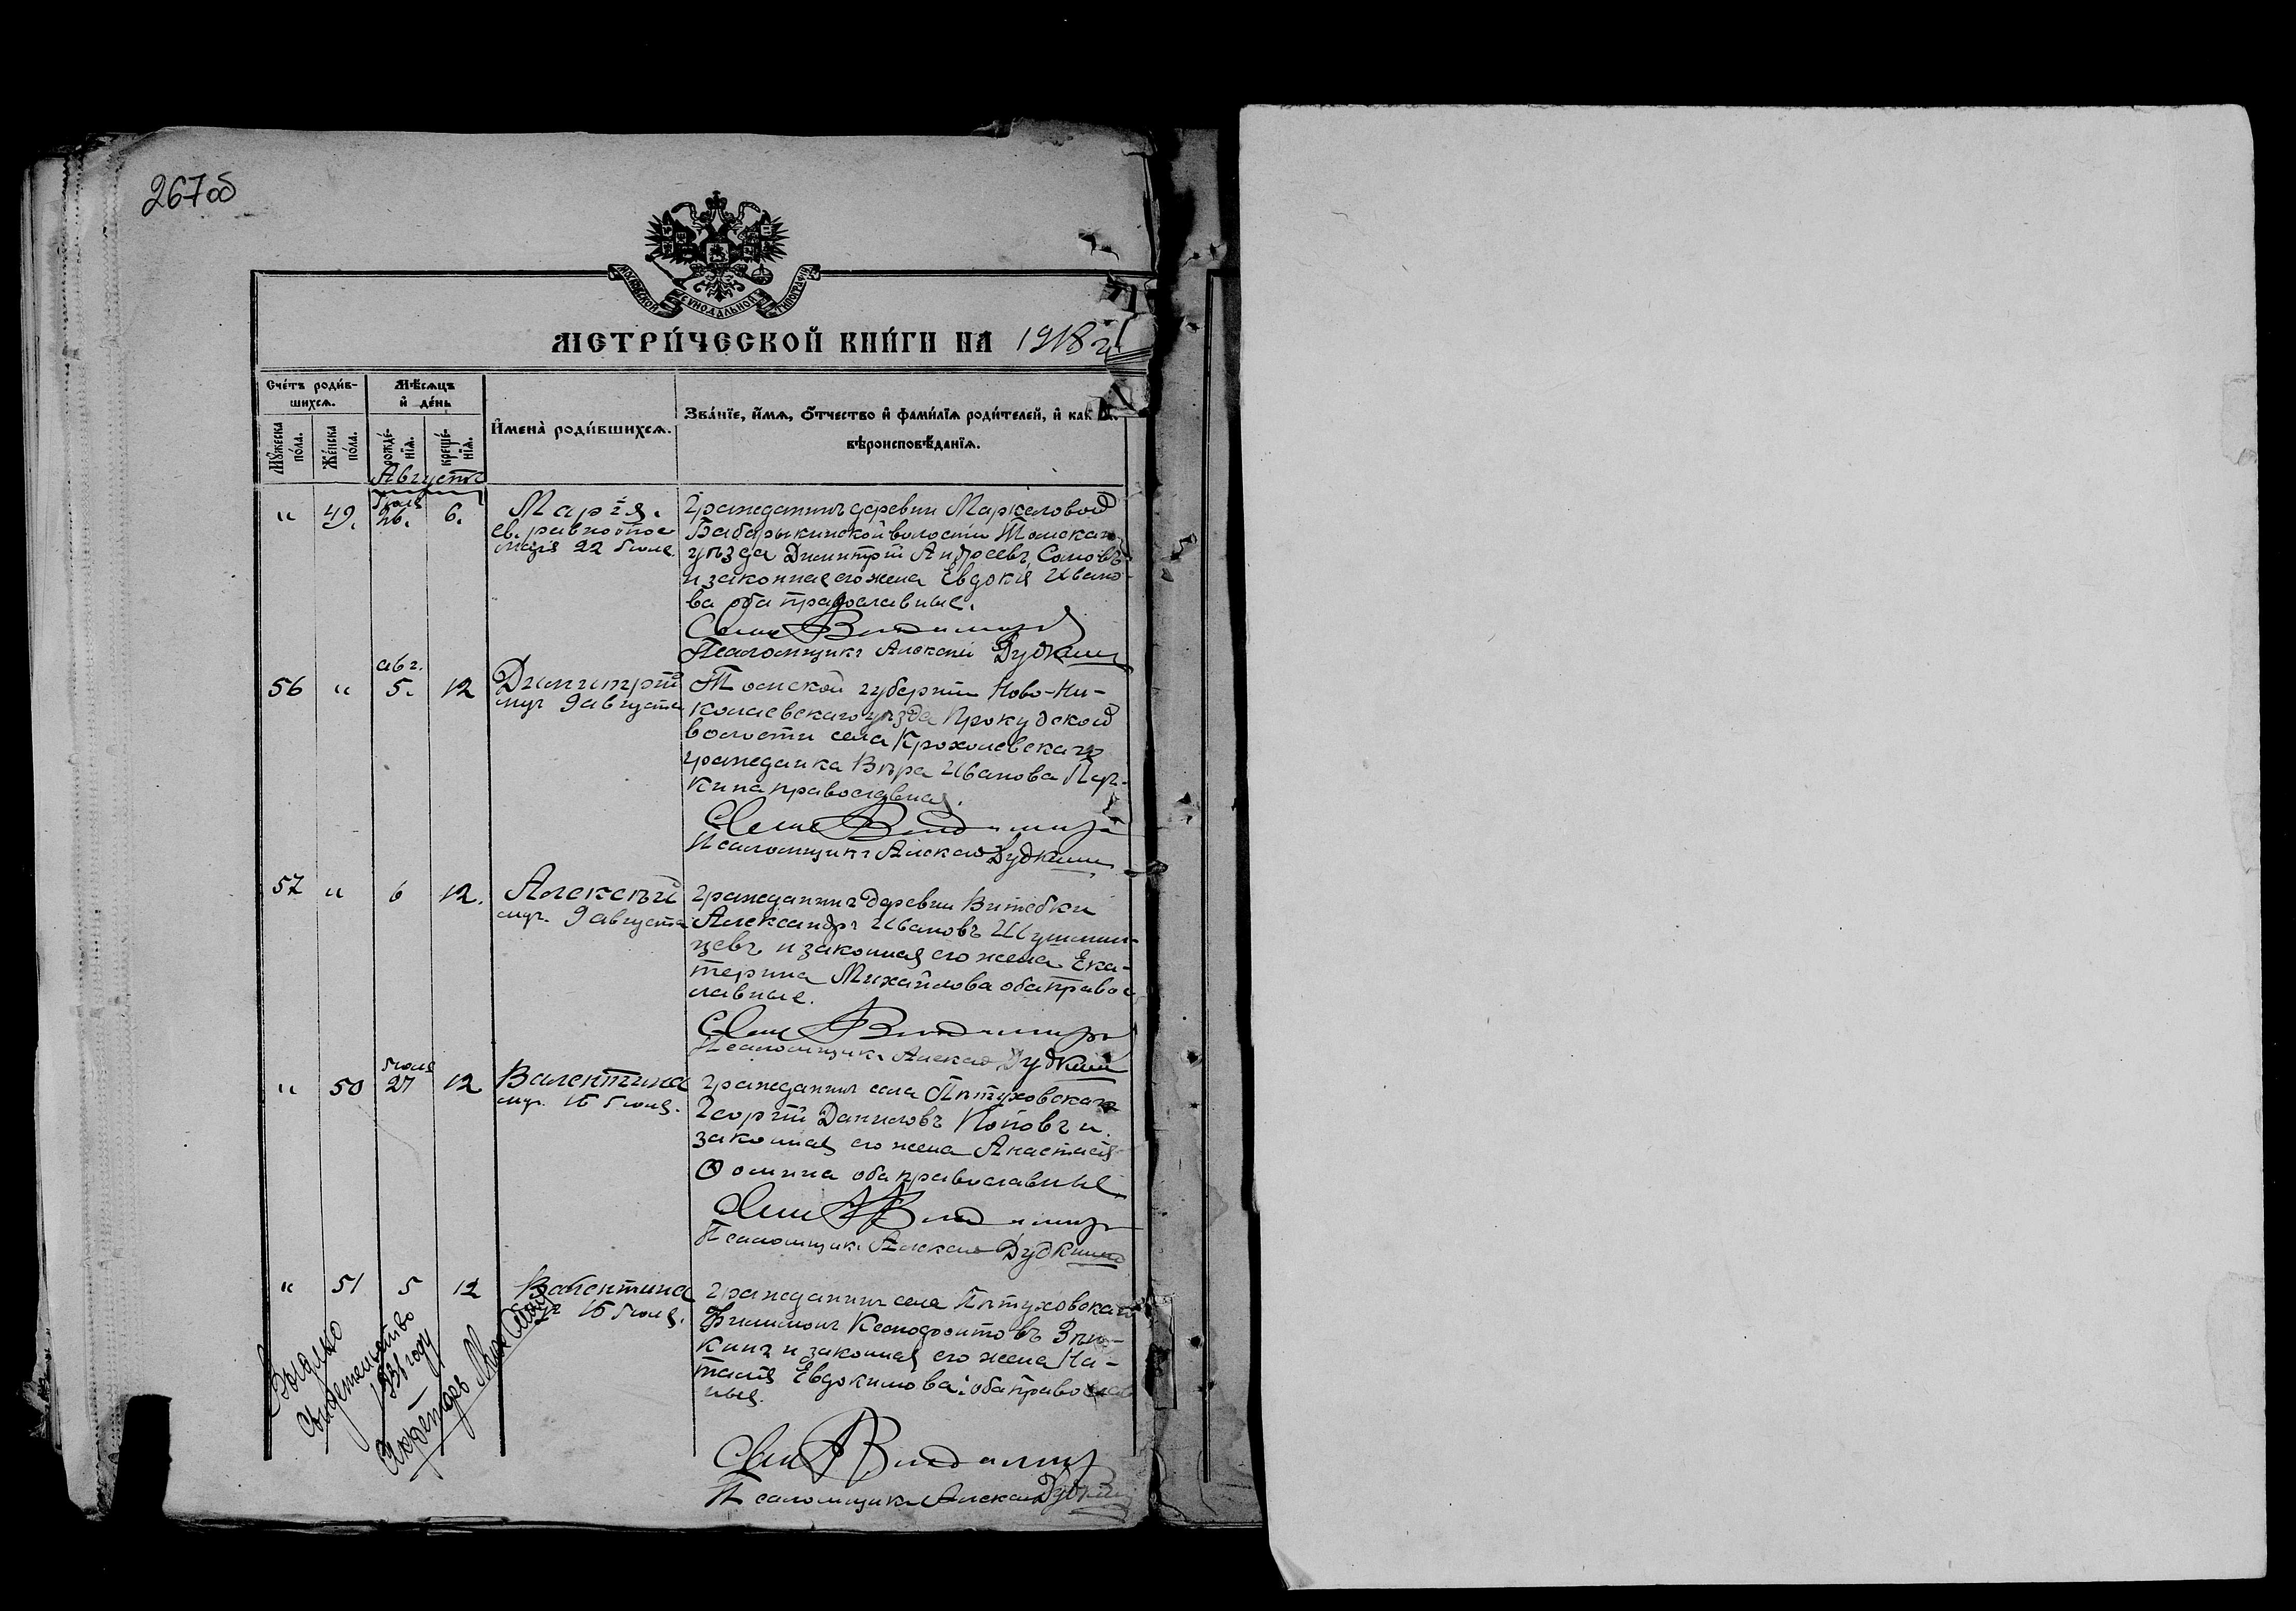 267об
МОСКОВСКОЙ СѴНОДАЛЬНОЙ ТИПОГРАФІИ
МЕТРИ́ЧЕСКОЙ КНИ́ГИ НА 1918 г
Сче́тъ роди́в-
шихсѧ.
Мѣ́сѧцъ
и҆ де́нь
И҆мена̀ роди́вшихсѧ.
Зва́нїе, и҆́мѧ, ѻ҆́тчество и҆ фами́лїѧ роди́телей, и҆ как
вѣроисповѣ́данїѧ.
Мꙋ́жеска
по́ла.
Же́нска
по́ла.
рожде́-
нїѧ.
креще́-
нїѧ.
Августъ
" 49. Іюля 26. 6.
Марія.
св. равноапос
Магд 22 Іюля.
Гражданинъ деревни Маркеловой
Бабарыкинской волости Томскаго
уѣзда Димитрій Андреевъ Сомовъ
и законная его жена Евдокія Ивано-
ва оба православные.
Свящ Владимировъ
Псаломщикъ Алексій Дудкинъ
56 " авг. 5. 12
Димитрій
муч 9 августа
Томской губерніи Ново-Ни-
колаевскаго уѣзда Прокудской
волости села Крохолевскаго
гражданка Вѣра Иванова Пар-
кина православная.
Свящ Владимиров
Псаломщикъ Алексій Дудкинъ
57 " 6 12.
Алексѣй
муч. 9 августа
Гражданинъ деревни Витебки
Александръ Ивановъ
цевъ и законная его жена Ека-
терина Михайлова оба право
славные.
Свящ Владимиров
Псаломщикъ Алексій Дудкинъ
" 50 Іюля 27 12
Валентина
муч. 16 Іюля.
Гражданинъ села Пѣтуховскаго
Георгій Даниловъ Поповъ и
законная его жена Анастасія
Ѳомина оба православные
Свящ Владимиров
Псаломщикъ Алексій Дудкинъ
" 51 5 12
Валентина
16 Іюля.
Гражданинъ села Пѣтуховскаго
Филимонъ Ксенофонтовъ
кинъ и законная его жена На-
талія Евдокимова: оба правосла
ные.
Свящ Владимиров
Псаломщикъ Алексій Дудкинъ
Выдано
свидетельство
1931 году
Секретарь